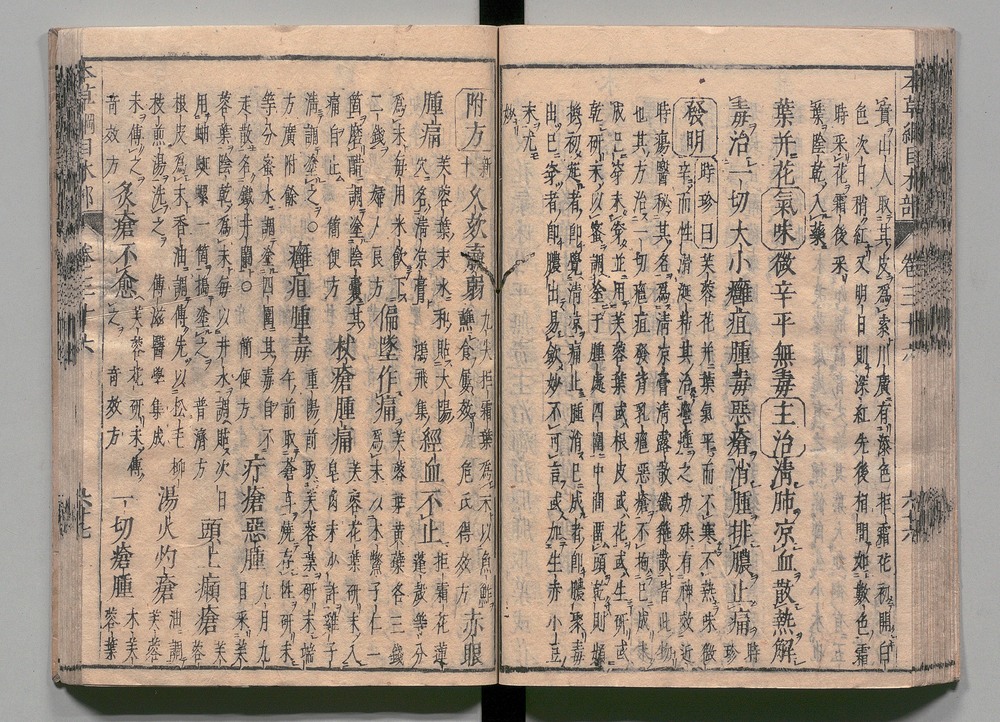 本草綱目木部 卷三十六 六十六
寶山人取其皮爲索川廣有添色拒霜花初開白
色次日稍紅又明日則深紅先後相間如數色霜
時采花霜後采
葉陰乾入藥
葉并花氣味微辛平無毒主治清肺涼血散熱解
毒治一切大小癰疽腫毒惡瘡消腫排膿止痛時珍
發明時珍曰芙蓉花并葉氣平而不寒不熱味微
辛而性滑涎粘其治癰腫之功殊有神效近
時瘍醫秘其名爲清涼膏清露散鐵箍散皆此物
也其方治一切癰疽發背乳癰惡瘡不拘已成未
成已穿未穿並用芙蓉葉或根皮或花或生研或
乾研末以蜜調塗于腫處四圍中間留頭乾則頻
換初起者即覺清涼痛止腫消已成者即膿聚毒
出已穿者即膿出易斂妙不可言或加生赤小豆
末尤妙
附方新十 久欬羸弱 九尖拒霜葉爲末以魚鮓蘸食屢效危氏得效方 赤眼
腫痛 芙蓉葉末水和貼太陽穴名清涼膏鴻飛集 經血不止 拒霜花蓮蓬殼等分
爲末每用米飲下二錢婦人良方 偏墜作痛 芙蓉葉黃蘗各三錢爲末以木鱉子仁一
箇磨醋調塗陰囊其痛自止簡便方 杖瘡腫痛 芙蓉花葉研末入皂角末少許雞子
清調塗之○方廣附餘 癰疽腫毒 重陽前取芙蓉葉研末端午前取蒼耳燒存性研末
等分蜜水調塗四圍其毒自不走散名鐵井闌○簡便方 疔瘡惡腫 九月九日采芙
蓉葉陰乾爲末每以井水調貼次日用蚰蜒螺一箇搗塗之普濟方 頭上癩瘡 芙蓉
根皮爲末香油調傅先以松毛柳枝煎湯洗之傅滋醫學集成 湯火灼瘡 油調芙蓉
末傅之奇效方 灸瘡不愈 芙蓉花研末傅之奇效方 一切瘡腫 木芙蓉葉
本草綱目木部 卷三十六 六十七